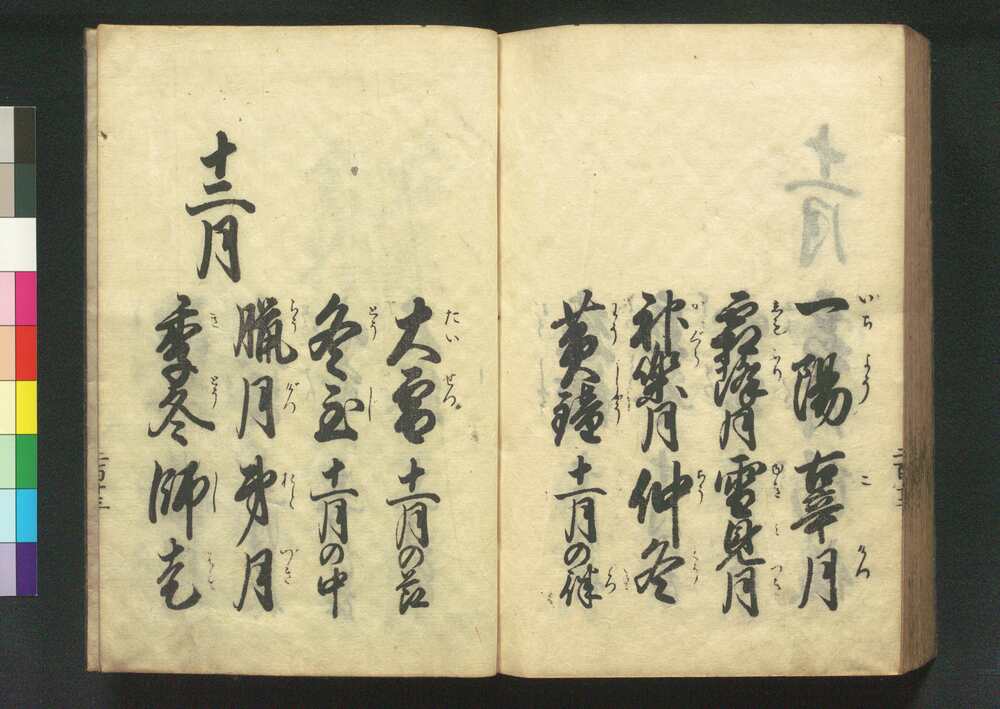 十一月
一陽 辜月
霜降月 雪見月
神楽月 仲冬
黄鐘 十一月の律
大雪 十一月の節
冬至 十一月の中
十二月
臘月 弟月
季冬 師走